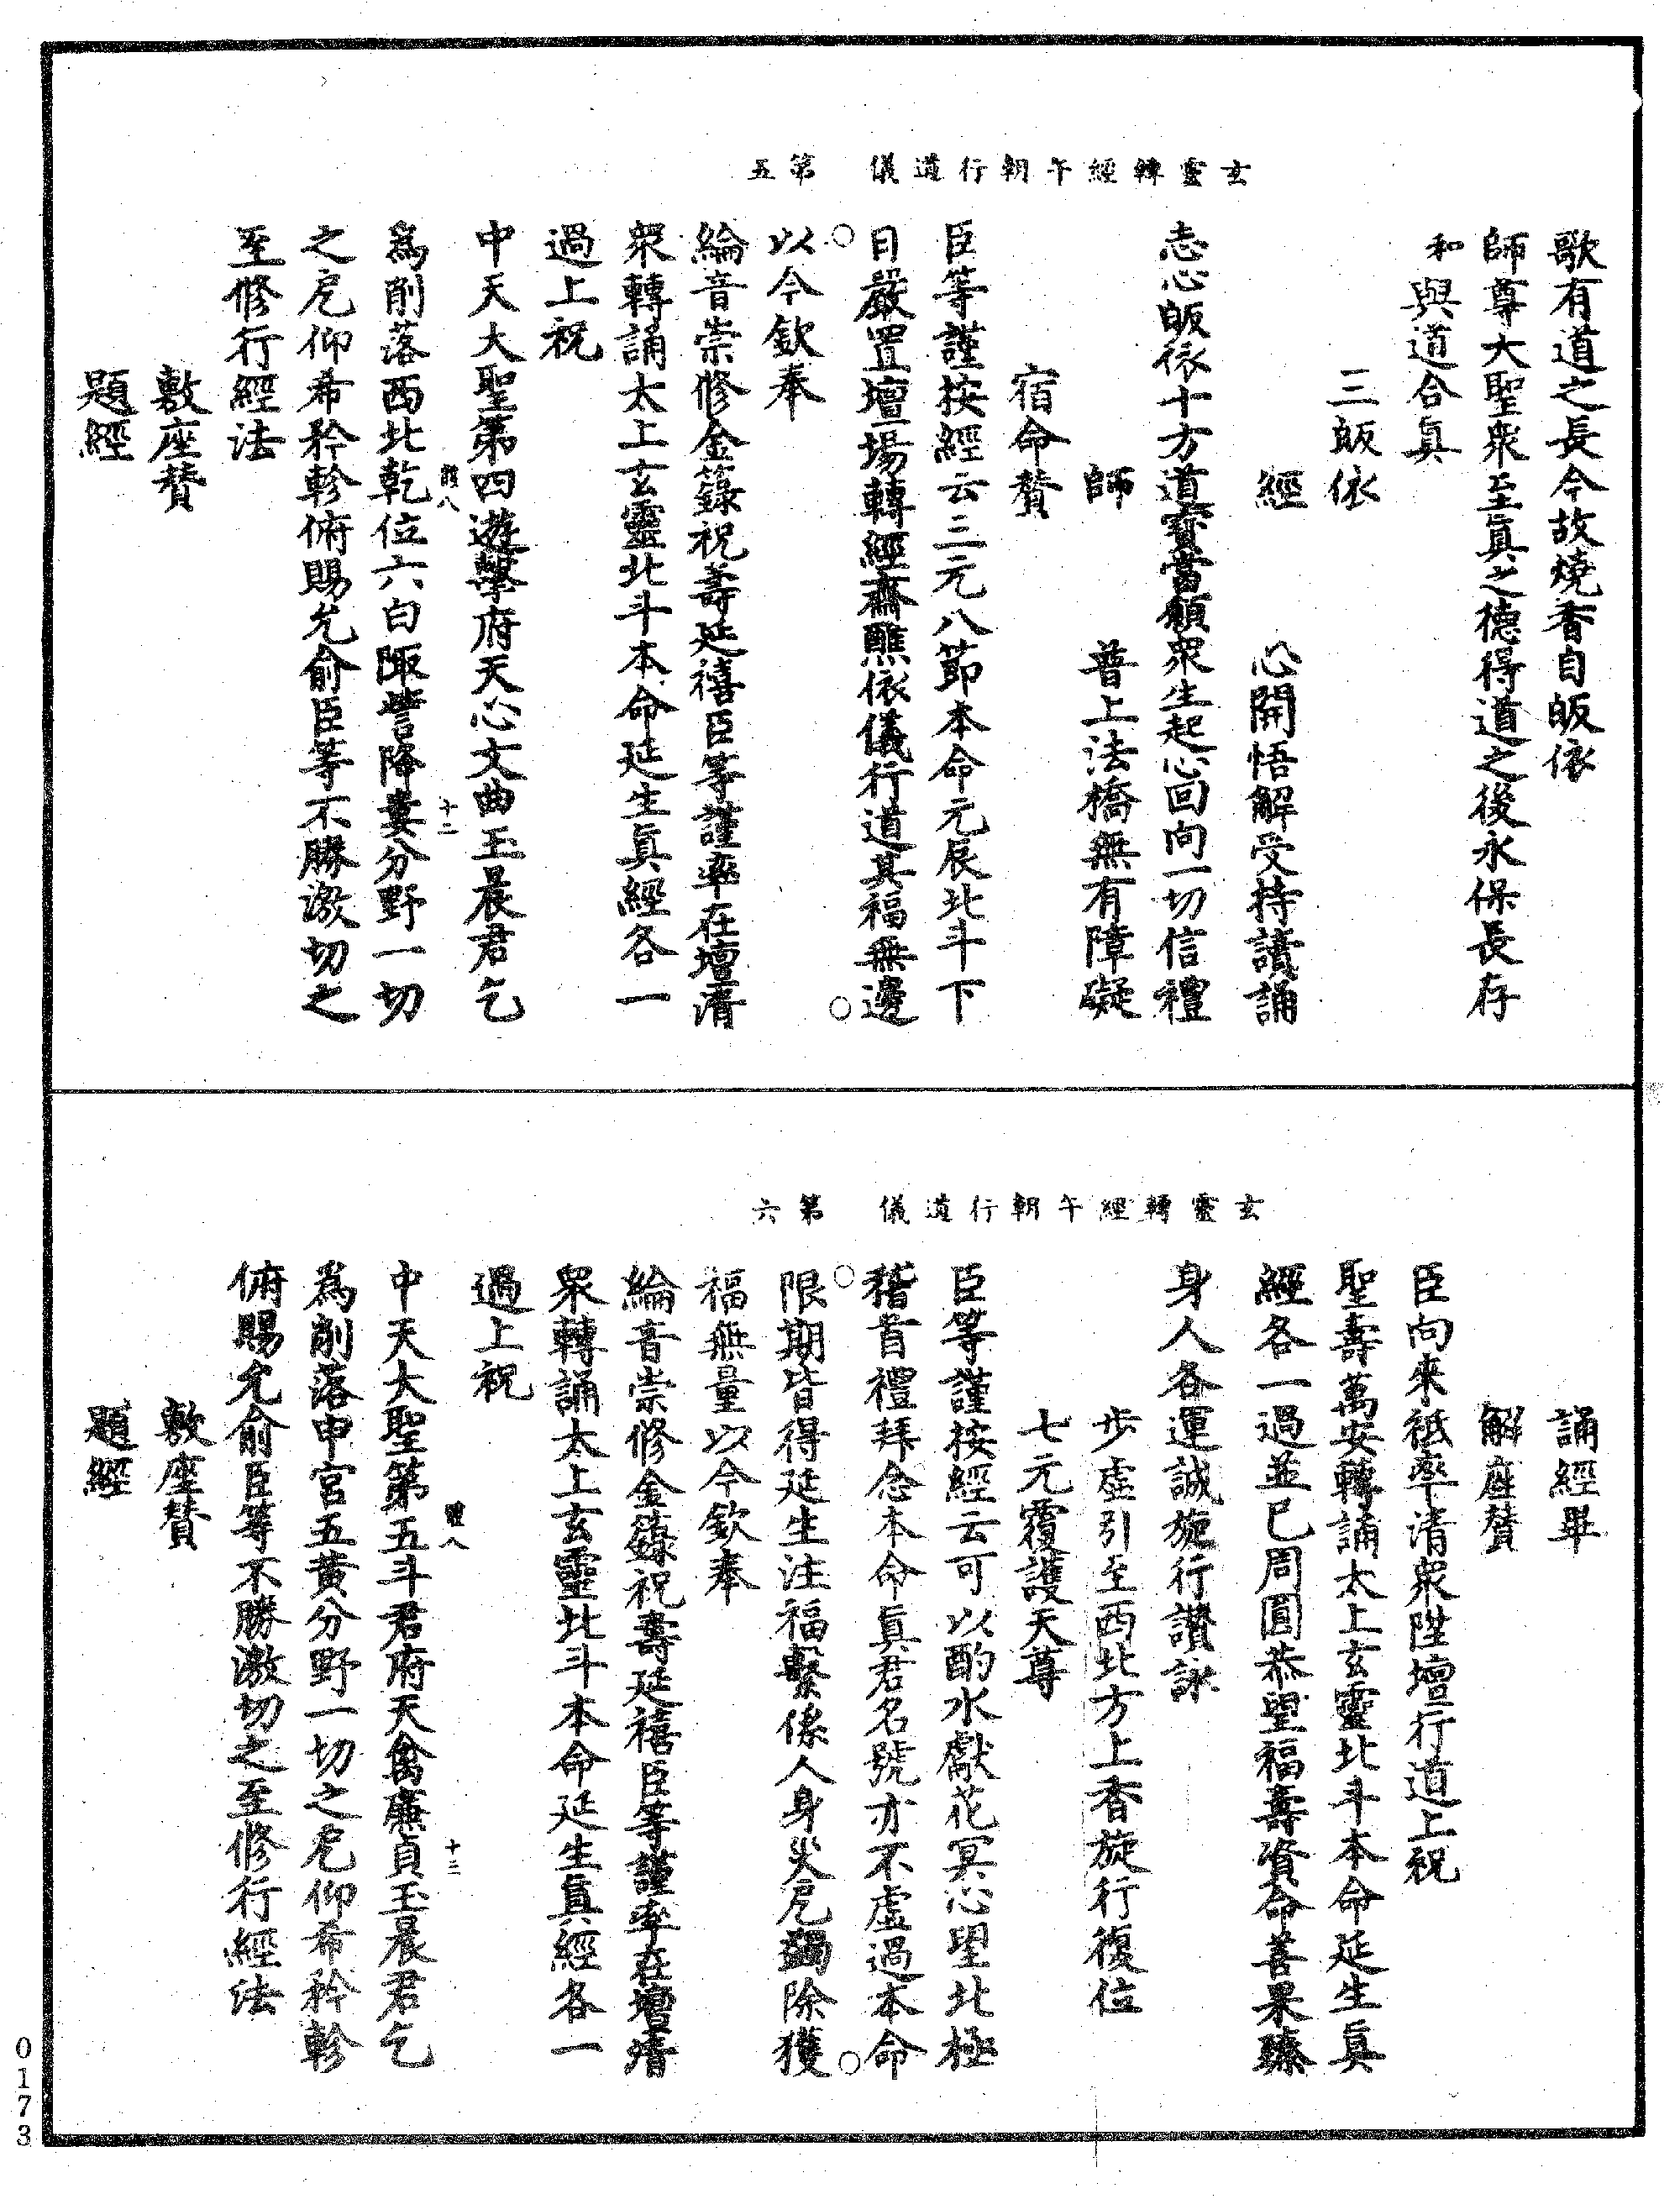 玄靈轉經午朝行道儀　第五
歌有道之長今故燒香自皈依
師尊大聖衆至眞之德得道之後永保長存
和與道合眞
三皈依
經　心開悟解受持讀誦
志心皈依十方道寶當願衆生起心回向一切信禮
師　普上法橋無有障礙
宿命贊
臣等謹按經云三元八節本命元辰北斗下
日嚴置壇場轉經齋醮依儀行道其福無邊
以今欽奉
綸音崇修金籙祝壽延禧臣等謹率在壇清
衆轉誦太上玄靈北斗本命延生眞經各一
過上祝
中天大聖第四遊擊府天心文曲玉晨君乞
體八　十二
爲削落西北乾位六白陬訾降婁分野一切
之戹仰希矜軫俯賜允俞臣等不勝激切之
至修行經法
敷座贊
題經
玄靈轉經午朝行道儀　第六
誦經畢
解座贊
臣向來祗率清衆陞壇行道上祝
聖壽萬安轉誦太上玄靈北斗本命延生眞
經各一過並已周圓恭望福壽資命善果臻
身人各運誠旋行讚詠
步虛引至西北方上香旋行復位
七元覆護天尊
臣等謹按經云可以酌水獻花冥心望北極
稽首禮拜念本命眞君名號亦不虛過本命
限期皆得延生注福繫係人身災戹蠲除獲
福無量以今欽奉
綸音崇修金籙祝壽延禧臣等謹率在壇清
衆轉誦太上玄靈北斗本命延生眞經各一
過上祝
體八　十三
中天大聖第五斗君府天禽廉貞玉晨君乞
爲削落中宮五黃分野一切之戹仰希矜軫
俯賜允俞臣等不勝激切之至修行經法
敷座贊
題經
0173